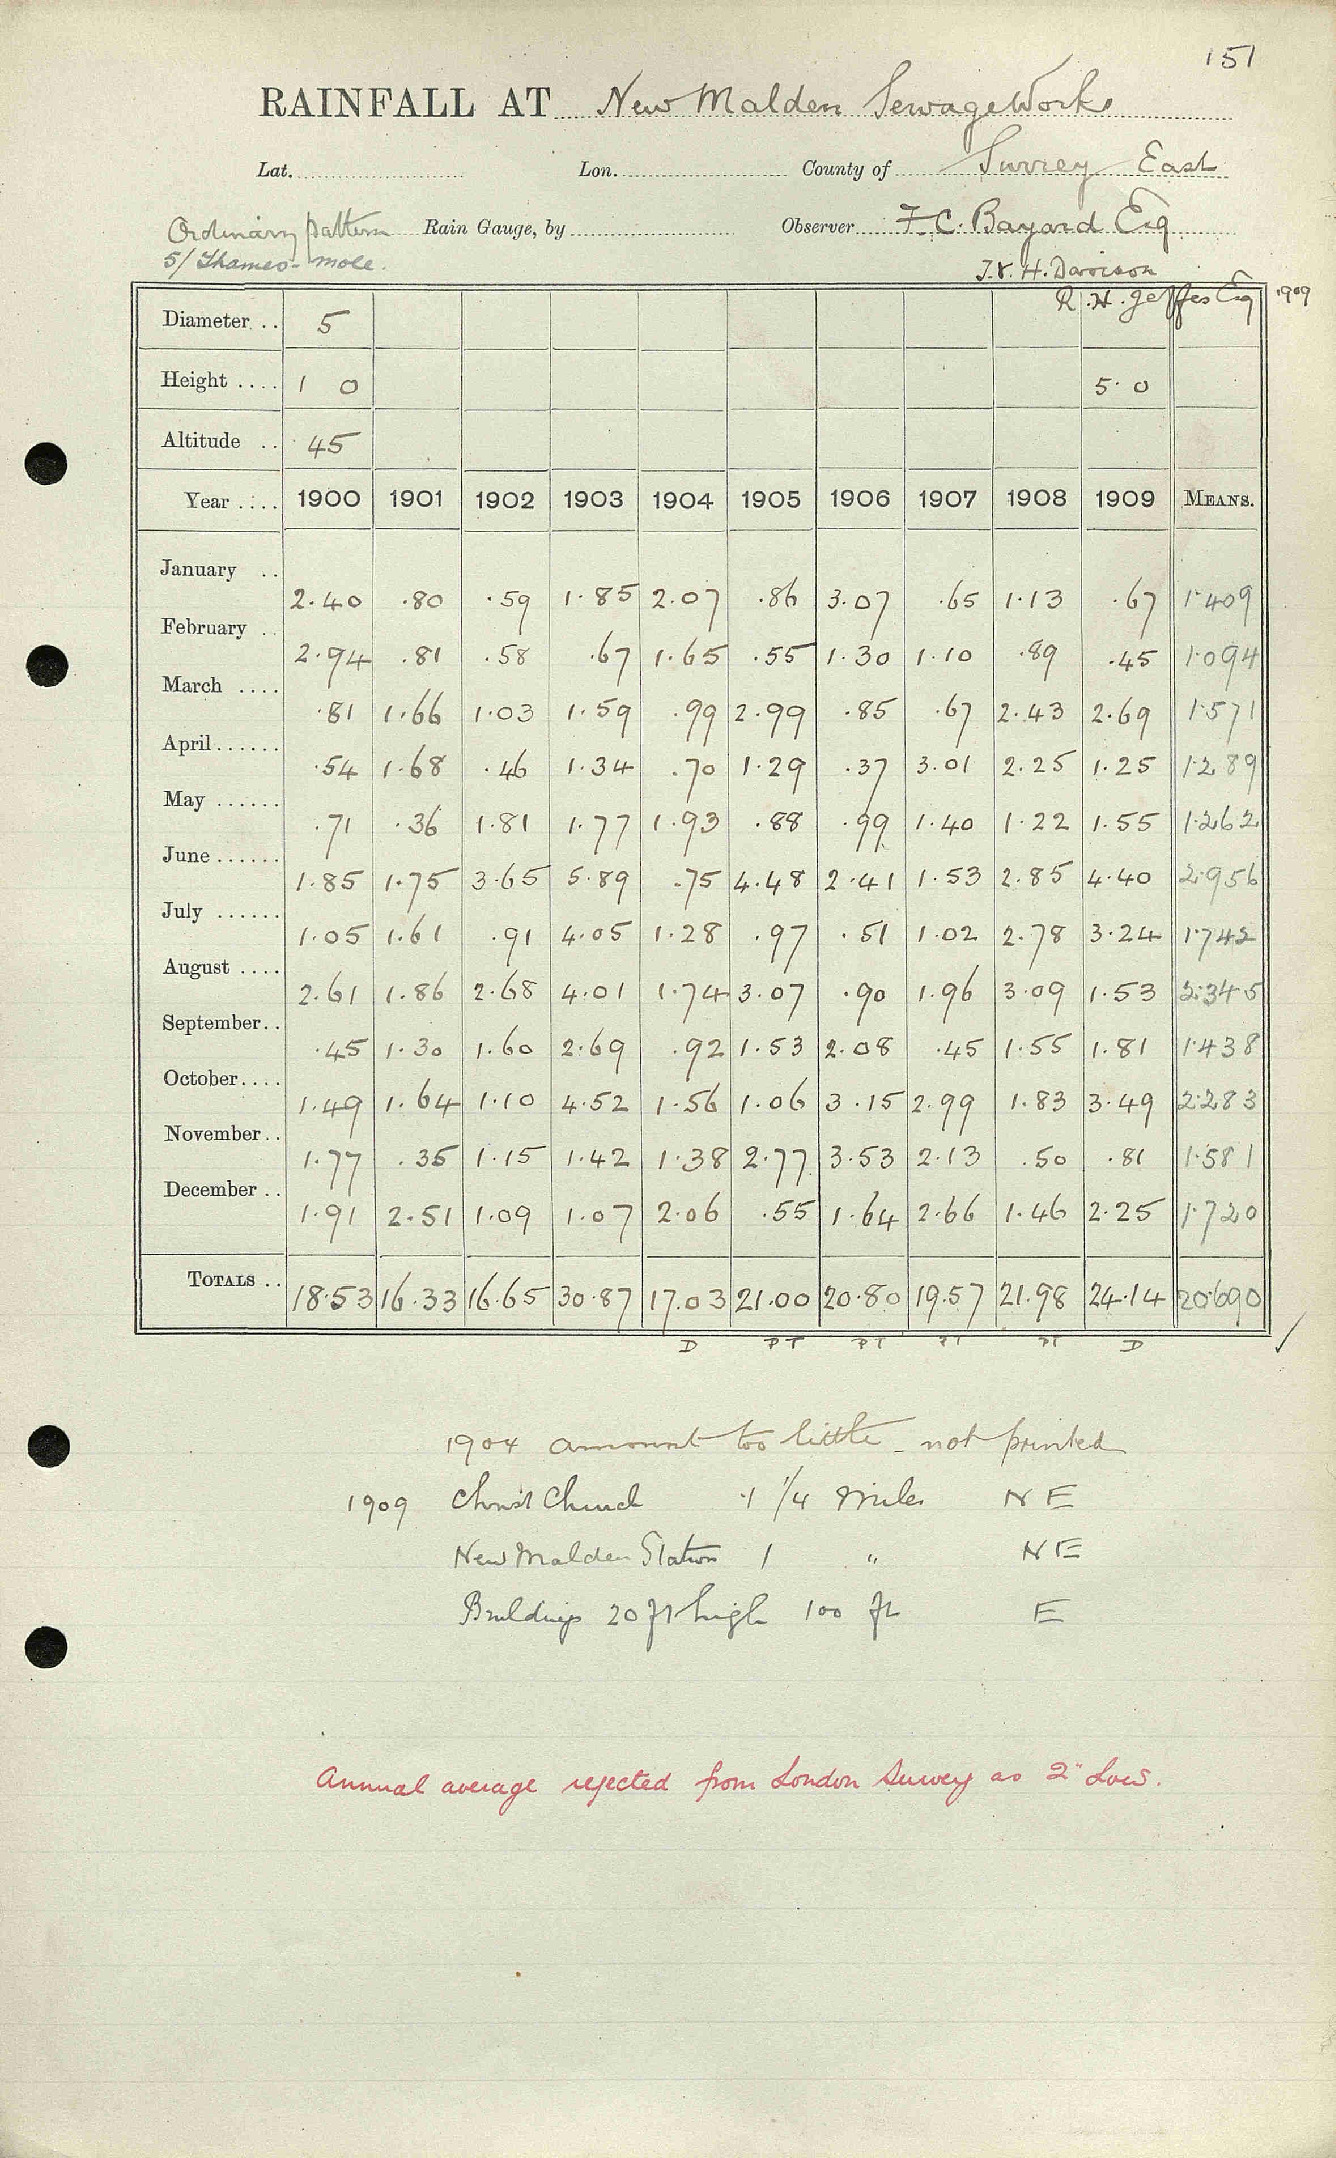 151
RAINFALL AT New Malden Sewage Works
Lat. Lon. County of Surrey East
Ordinary pattern Rain Gauge, by Observer F. C. Bayard Esq
5/ Thames - Mole. J. & H. Davison
R. H. Jeffes Esq 1909
Diameter .. 5
Height .... 1 0 5.0
Altitude .. 45
Year .... 1900 1901 1902 1903 1904 1905 1906 1907 1908 1909 MEANS.
January .. 2.40 .80 .59 1.85 2.07 .86 3.07 .65 1.13 .67 1.409
February .. 2.94 .81 .58 .67 1.65 .55 1.30 1.10 .89 .45 1.094
March .... .81 1.66 1.03 1.59 .99 2.99 .85 .67 2.43 2.69 1.571
April ...... .54 1.68 .46 1.34 .70 1.29 .37 3.01 2.25 1.25 1.289
May ...... .71 .36 1.81 1.77 1.93 .88 .99 1.40 1.22 1.55 1.262
June ...... 1.85 1.75 3.65 5.89 .75 4.48 2.41 1.53 2.85 4.40 2.956
July ...... 1.05 1.61 .91 4.05 1.28 .97 .51 1.02 2.78 3.24 1.742
August .... 2.61 1.86 2.68 4.01 1.74 3.07 .90 1.96 3.09 1.53 2.345
September .. .45 1.30 1.60 2.69 .92 1.53 2.08 .45 1.55 1.81 1.438
October .... 1.49 1.64 1.10 4.52 1.56 1.06 3.15 2.99 1.83 3.49 2.283
November .. 1.77 .35 1.15 1.42 1.38 2.77 3.53 2.13 .50 .81 1.581
December .. 1.91 2.51 1.09 1.07 2.06 .55 1.64 2.66 1.46 2.25 1.720
TOTALS .. 18.53 16.33 16.65 30.87 17.03 21.00 20.80 19.57 21.98 24.14 20.690
D PT PT PT PT D ✓
1904 amount too little - not printed
1909 Christ Church 1 1/4 Miles NE
New Malden Station 1 " NE
Buildings 20 ft high 100 ft E
Annual average rejected from London Survey as 2" low.